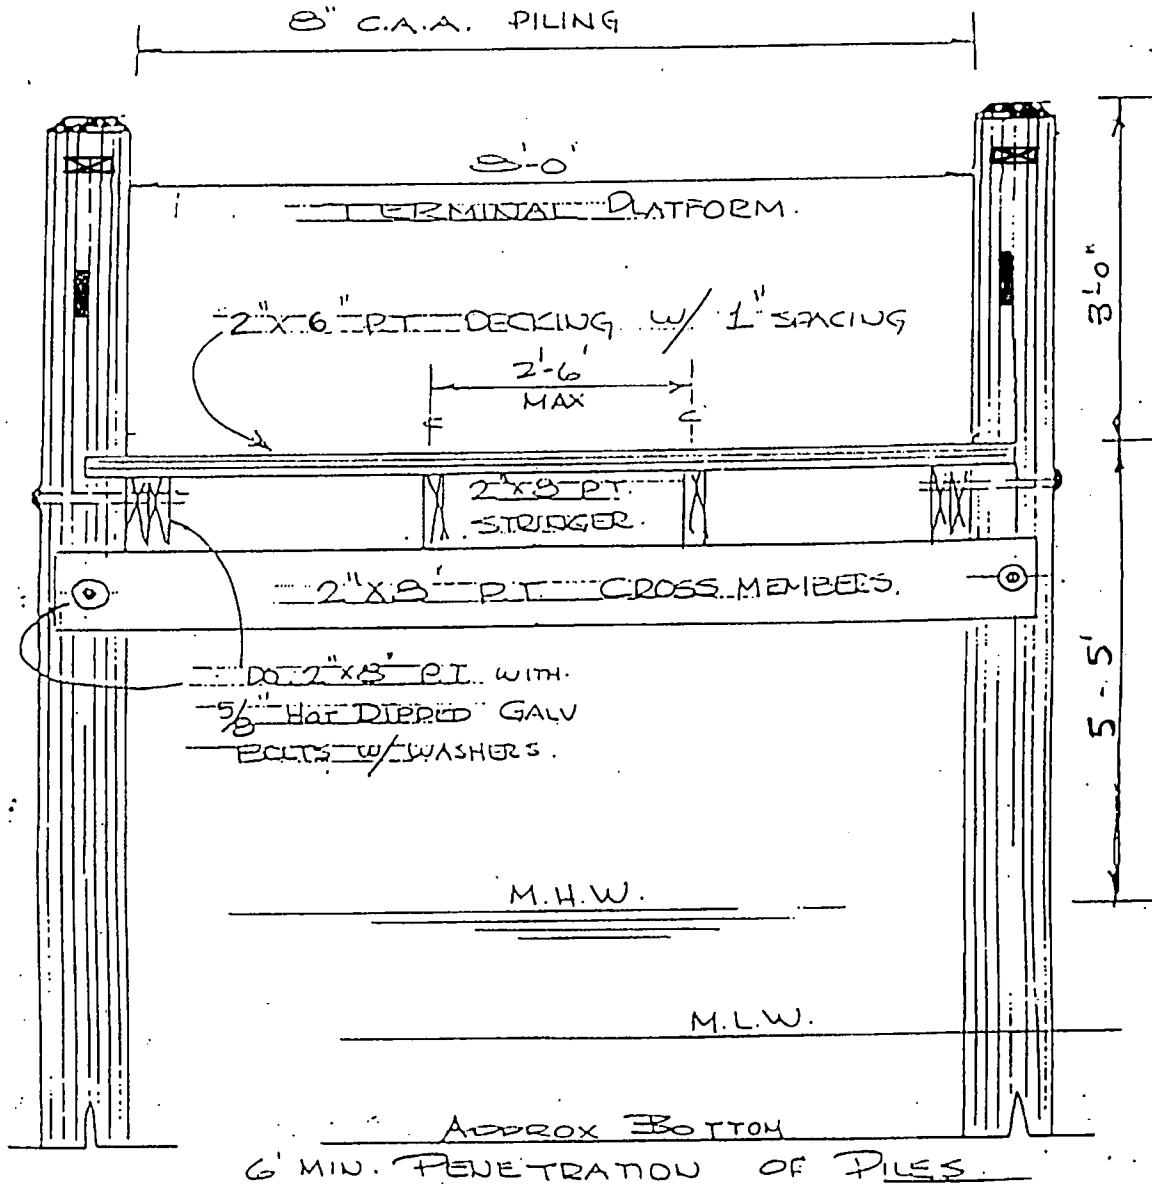 8" C.A.A. PILING
8'-0'
TERMINAL PLATFORM.
2"X6" P.T. DECKING W/ 1" SPACING
2'-6'
MAX
3'-0"
2"X8 P.T.
STRINGER.
2"X8' P.T. CROSS MEMBERS.
DO 2"X8" P.T. WITH.
5/8" HOT DIPPED GALV
BOLTS W/ WASHERS.
5-5'
M.H.W.
M.L.W.
APPROX BOTTOM
6' MIN. PENETRATION OF PILES.